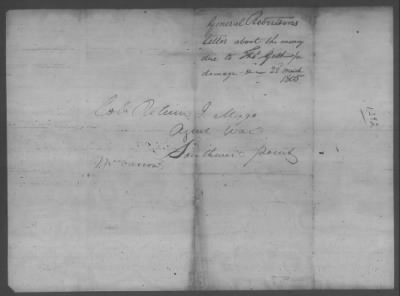 General Robertsons
letter about the money
due to Thos
damage &c 28 March
1805
Colo Return J. Meigs
Agent War
Southwest point
1292